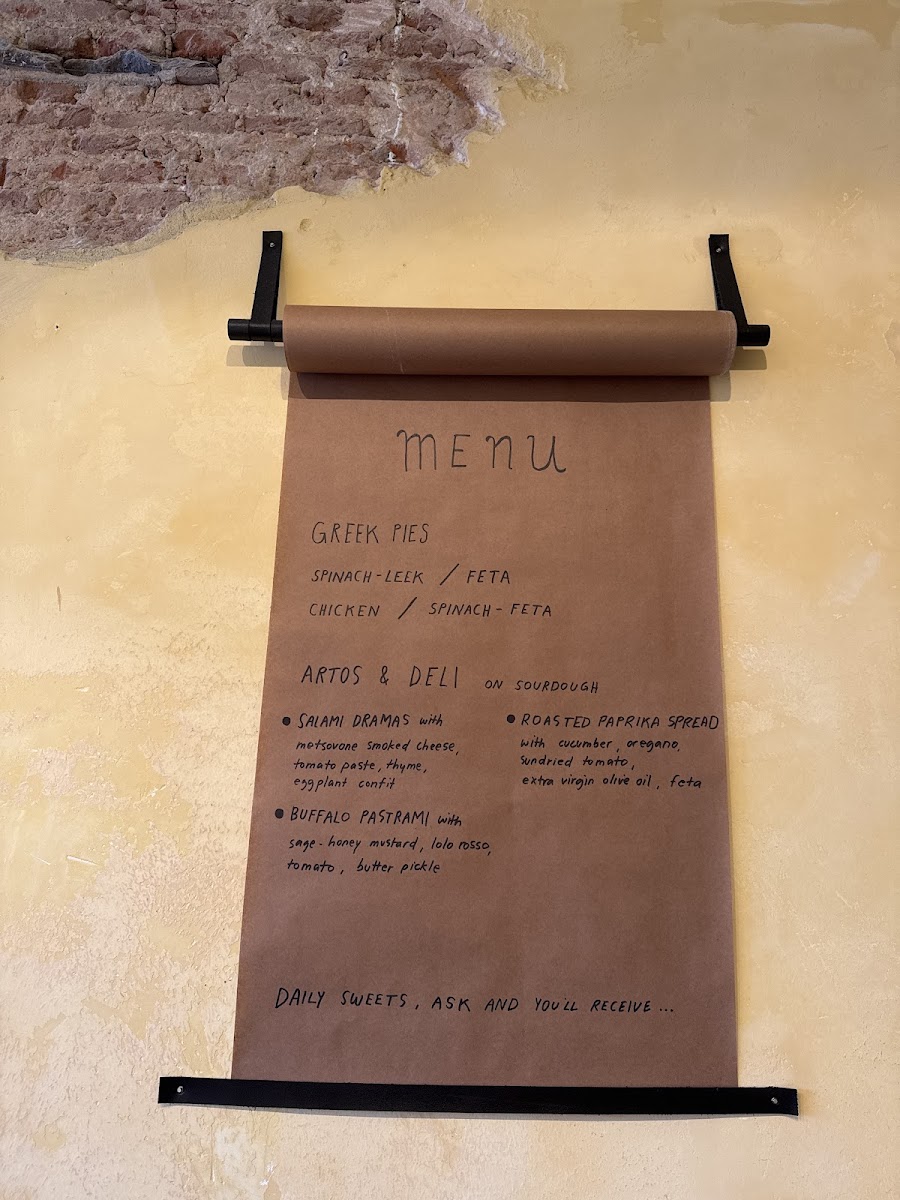 MENU
GREEK PIES
SPINACH-LEEK / FETA
CHICKEN / SPINACH-FETA
ARTOS & DELI ON SOURDOUGH
• SALAMI DRAMAS with
metsovone smoked cheese,
tomato paste, thyme,
eggplant confit
• BUFFALO PASTRAMI with
sage-honey mustard, lolo rosso,
tomato, butter pickle
• ROASTED PAPRIKA SPREAD
with cucumber, oregano,
sundried tomato,
extra virgin olive oil, feta
DAILY SWEETS, ASK AND YOU'LL RECEIVE...